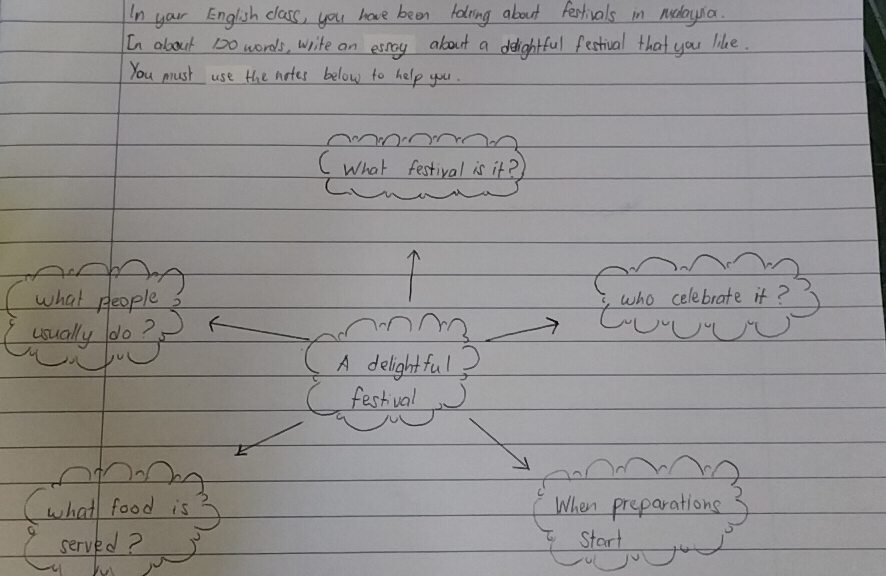 In your English class, you have been talking about festivals in Malaysia.
In about 120 words, write an essay about a delightful festival that you like.
You must use the notes below to help you.
What festival is it?
what people
usually do?
who celebrate it?
A delightful
festival
what food is
served?
When preparations
start